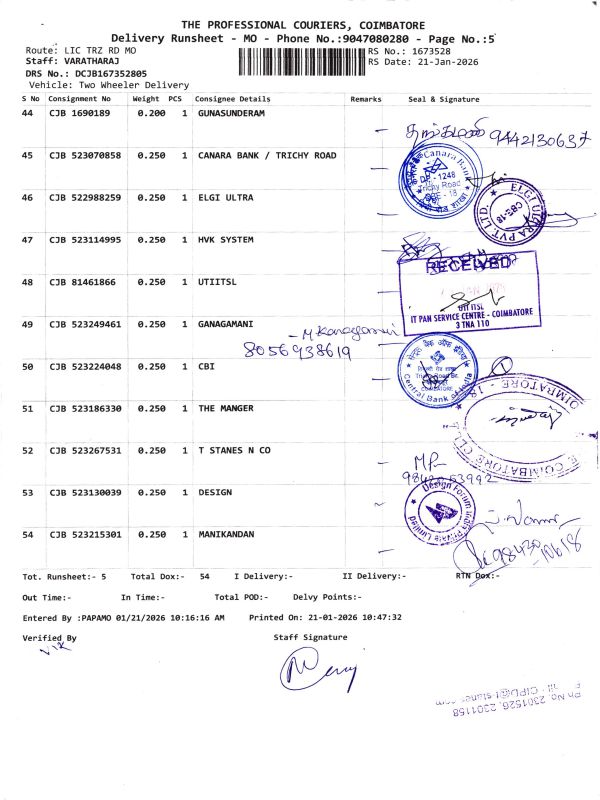 THE PROFESSIONAL COURIERS, COIMBATORE
Delivery Runsheet - MO - Phone No.:9047080280 - Page No.:5
Route: LIC TRZ RD MO
RS No.: 1673528
Staff: VARATHARAJ
RS Date: 21-Jan-2026
DRS No.: DCJB167352805
Vehicle: Two Wheeler Delivery
S No Consignment No Weight PCS Consignee Details Remarks Seal & Signature
44 CJB 1690189 0.200 1 GUNASUNDERAM
9442130637
45 CJB 523070858 0.250 1 CANARA BANK / TRICHY ROAD
Canara Bank
DP - 1248
Trichy Road
CBE - 18
46 CJB 522988259 0.250 1 ELGI ULTRA
ELGI ULTRA PVT. LTD.
CBE-18
47 CJB 523114995 0.250 1 HVK SYSTEM
RECEIVED
48 CJB 81461866 0.250 1 UTIITSL
UTI ITSL
IT PAN SERVICE CENTRE - COIMBATORE
3 TNA 110
49 CJB 523249461 0.250 1 GANAGAMANI
- M Kanagamani
8056938619
50 CJB 523224048 0.250 1 CBI
Central Bank of India
51 CJB 523186330 0.250 1 THE MANGER
COIMBATORE - 18
COIMBATORE
52 CJB 523267531 0.250 1 T STANES N CO
53 CJB 523130039 0.250 1 DESIGN
Design Forum India Private Limited
54 CJB 523215301 0.250 1 MANIKANDAN
98430
Tot. Runsheet:- 5 Total Dox:- 54 I Delivery:- II Delivery:- RTN Dox:-
Out Time:- In Time:- Total POD:- Delvy Points:-
Entered By :PAPAMO 01/21/2026 10:16:16 AM Printed On: 21-01-2026 10:47:32
Verified By Staff Signature
Ph No. 2301526, 2301158